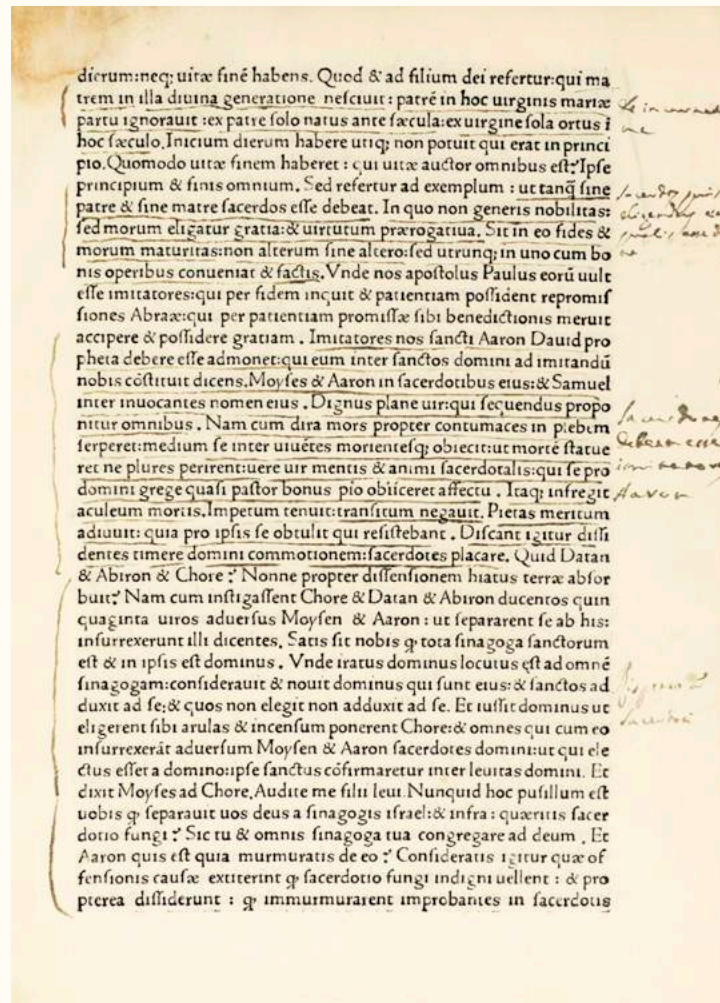 dierum:neq; uitæ finē habens. Quod & ad filium dei refertur:qui ma
trem in illa diuina generatione nesciuit : patrē in hoc uirginis mariæ
partu ignorauit :ex patre solo natus ante sæcula:ex uirgine sola ortus ī
hoc sæculo. Inicium dierum habere utiq; non potuit qui erat in princi
pio. Quomodo uitæ finem haberet : qui uitæ auctor omnibus est? Ipse
principium & finis omnium. Sed refertur ad exemplum : ut tanq̃ sine
patre & sine matre sacerdos esse debeat. In quo non generis nobilitas:
sed morum eligatur gratia:& uirtutum prærogatiua. Sit in eo fides &
morum maturitas:non alterum sine altero:sed utrunq; in uno cum bo
nis operibus conueniat & factis. Vnde nos apostolus Paulus eorū uult
esse imitatores:qui per fidem inquit & patientiam possident repromis
siones Abraæ:qui per patientiam promissæ sibi benedictionis meruit
accipere & possidere gratiam . Imitatores nos sancti Aaron Dauid pro
pheta debere esse admonet:qui eum inter sanctos domini ad imitandū
nobis cōstituit dicens. Moyses & Aaron in sacerdotibus eius:& Samuel
inter inuocantes nomen eius . Dignus plane uir:qui sequendus propo
nitur omnibus . Nam cum dira mors propter contumaces in plebem
serperet:medium se inter uiuētes morientesq; obiecit:ut mortē statue
ret ne plures perirent:uere uir mentis & animi sacerdotalis:qui se pro
domini grege quasi pastor bonus pio obiiceret affectu . Itaq; infregit
aculeum mortis. Impetum tenuit:transitum negauit. Pietas meritum
adiuuit: quia pro ipsis se obtulit qui resistebant . Discant igitur dissi
dentes timere domini commotionem:sacerdotes placare. Quid Datan
& Abiron & Chore ? Nonne propter dissensionem hiatus terræ absor
buit? Nam cum instigassent Chore & Datan & Abiron ducentos quin
quaginta uiros aduersus Moysen & Aaron : ut separarent se ab his:
insurrexerunt illi dicentes. Satis sit nobis ꝙ tota sinagoga sanctorum
est & in ipsis est dominus . Vnde iratus dominus locutus ęst ad omnē
sinagogam:considerauit & nouit dominus qui sunt eius:& sanctos ad
duxit ad se:& quos non elegit non adduxit ad se. Et iussit dominus ut
eligerent sibi arulas & incensum ponerent Chore:& omnes qui cum eo
insurrexerāt aduersum Moysen & Aaron sacerdotes domini:ut qui ele
ctus esset a domino:ipse sanctus cōfirmaretur inter leuitas domini. Et
dixit Moyses ad Chore. Audite me filii leui. Nunquid hoc pusillum est
uobis ꝙ separauit uos deus a sinagogis israel:& infra : quæritis sacer
dotio fungi ? Sic tu & omnis sinagoga tua congregare ad deum . Et
Aaron quis est quia murmuratis de eo ? Consideratis igitur quæ of
fensionis causæ extiterint ꝙ sacerdotio fungi indigni uellent : & pro
pterea dissiderunt : ꝙ immurmurarent improbantes in sacerdotis